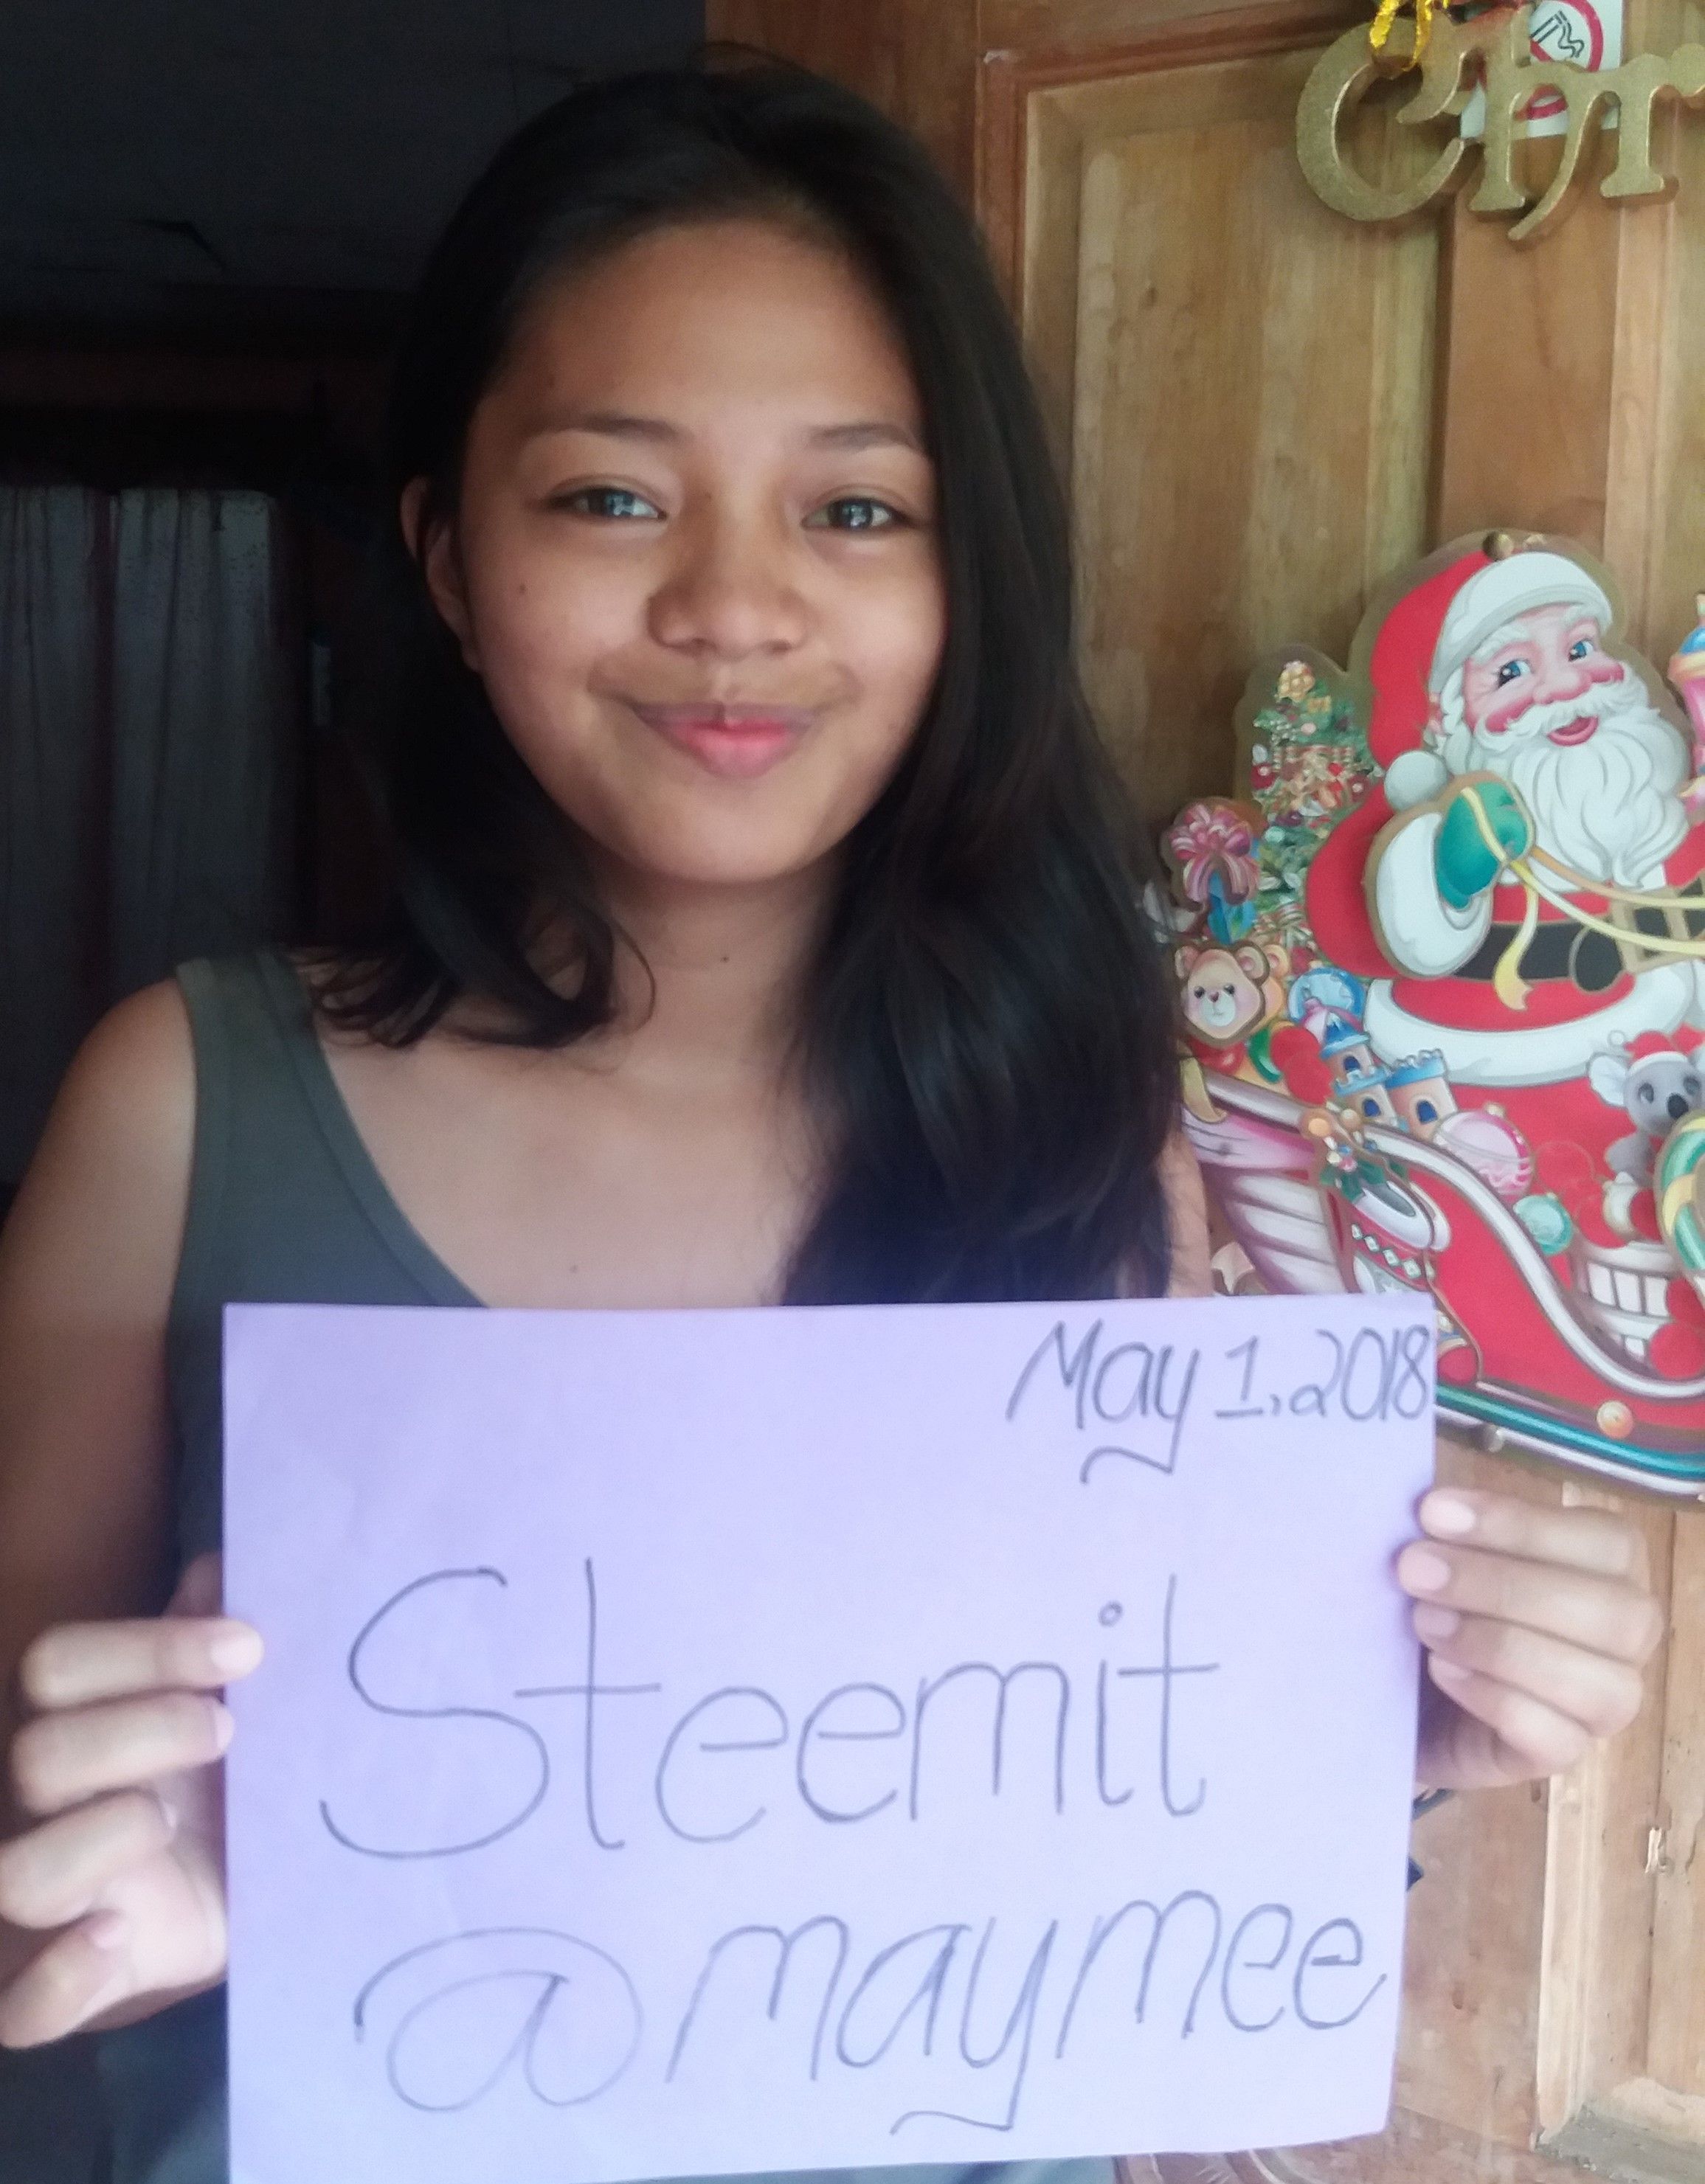 Chr
May 1, 2018
Steemit
@maymee